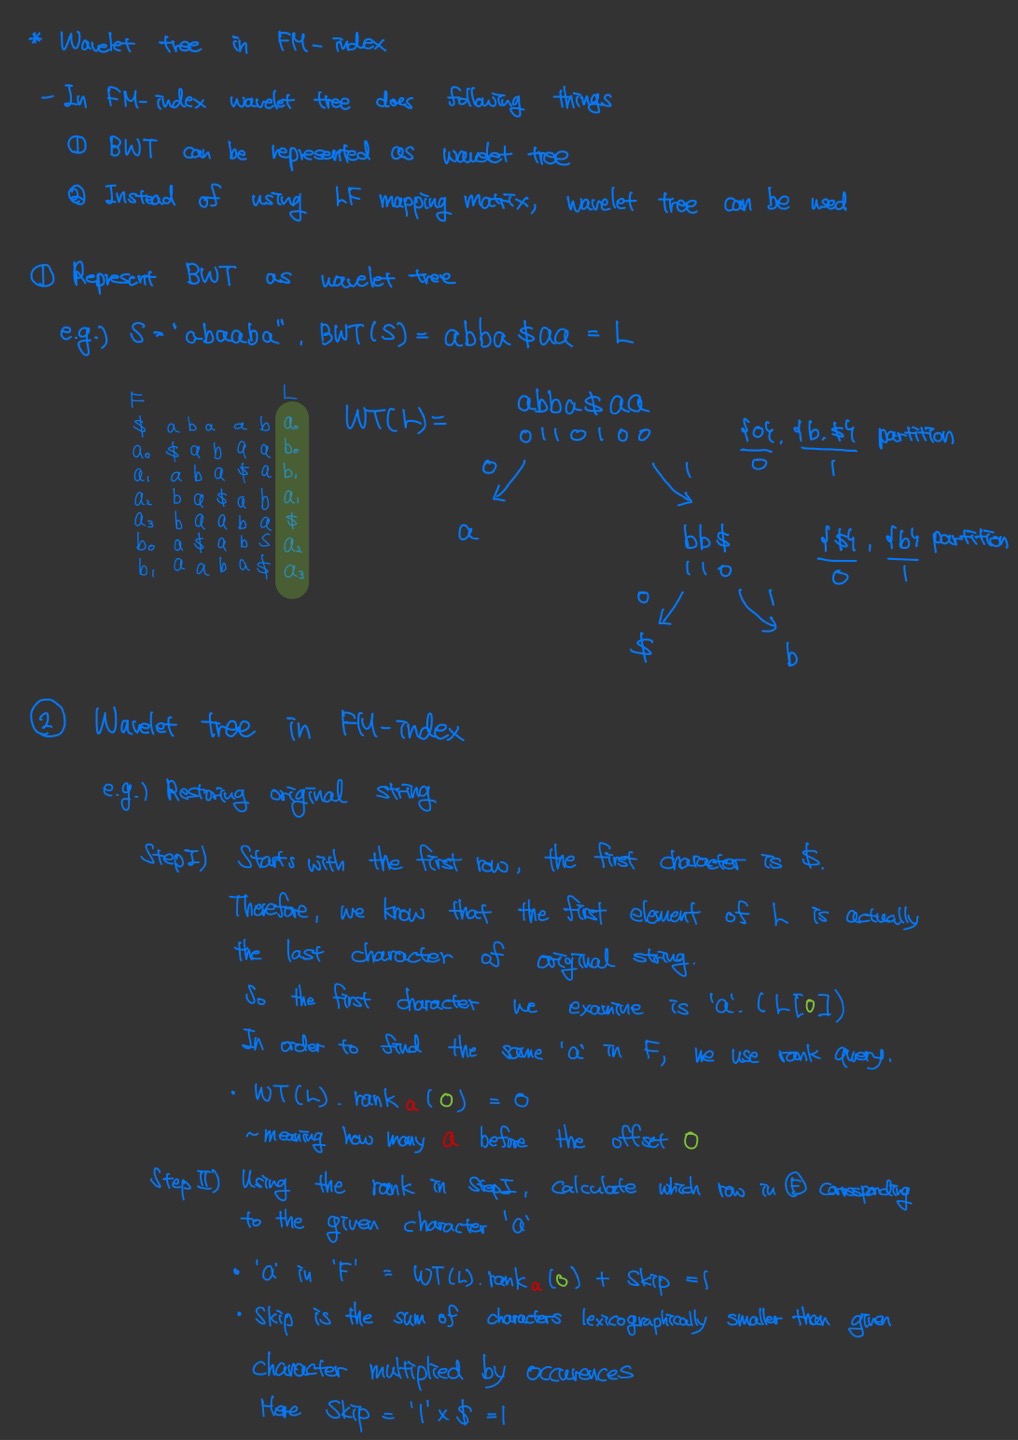 * Wavelet tree in FM-index
- In FM-index wavelet tree does following things
① BWT can be represented as wavelet tree
② Instead of using LF mapping matrix, wavelet tree can be used
① Represent BWT as wavelet tree
e.g.) S = "abaaba", BWT(S) = abba$aa = L
F L
$ a b a a b a₀
a₀ $ a b a a b₀
a₁ a b a $ a b₁
a₂ b a $ a b a₁
a₃ b a a b a $
b₀ a $ a b S a₂
b₁ a a b a $ a₃
WT(L) =
abba$aa
0110100
{a}, {b.$} partition
0 1
0 1
a
bb$
110
{$}, {b} partition
0 1
0 1
$ b
② Wavelet tree in FM-index
e.g.) Restoring original string
Step I) Starts with the first row, the first character is $.
Therefore, we know that the first element of L is actually
the last character of original string.
So the first character we examine is 'a'. (L[0])
In order to find the same 'a' in F, we use rank query.
· WT(L).rank a (0) = 0
~ meaning how many a before the offset 0
Step II) Using the rank in Step I, calculate which row in F corresponding
to the given character 'a'
· 'a' in 'F' = WT(L).rank a (0) + Skip = 1
· Skip is the sum of characters lexicographically smaller than given
character multiplied by occurences
Here Skip = '1' × $ = 1